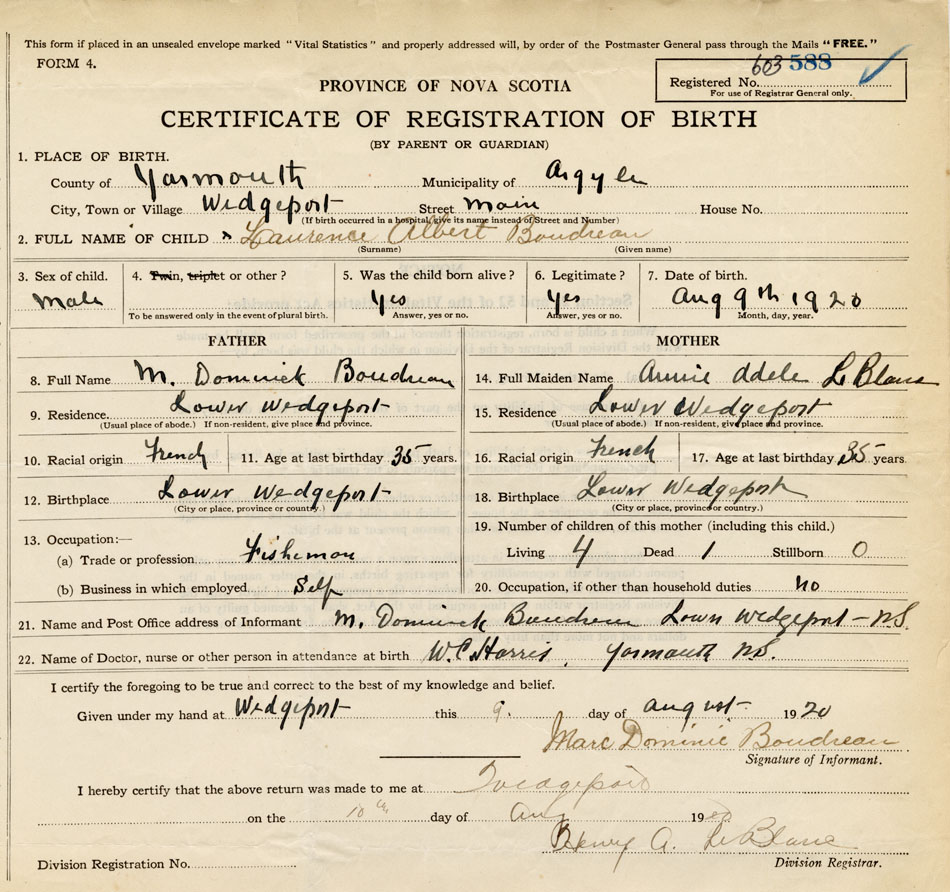 This form if placed in an unsealed envelope marked "Vital Statistics" and properly addressed will, by order of the Postmaster General pass through the Mails "FREE."
FORM 4.
603 588
Registered No.
For use of Registrar General only.
PROVINCE OF NOVA SCOTIA
CERTIFICATE OF REGISTRATION OF BIRTH
(BY PARENT OR GUARDIAN)
1. PLACE OF BIRTH.
County of Yarmouth Municipality of Argyle
City, Town or Village Wedgeport Street Main House No.
(If birth occurred in a hospital, give its name instead of Street and Number)
2. FULL NAME OF CHILD Laurence Albert Boudreau
(Surname) (Given name)
3. Sex of child. 4. Twin, triplet or other? 5. Was the child born alive? 6. Legitimate? 7. Date of birth.
Male Yes Yes Aug 9th 1920
To be answered only in the event of plural birth. Answer, yes or no. Answer, yes or no. Month, day, year.
FATHER MOTHER
8. Full Name M. Dominick Boudreau 14. Full Maiden Name Annie Adele LeBlanc
9. Residence Lower Wedgeport 15. Residence Lower Wedgeport
(Usual place of abode.) If non-resident, give place and province. (Usual place of abode.) If non-resident, give place and province.
10. Racial origin French 11. Age at last birthday 35 years. 16. Racial origin French 17. Age at last birthday 35 years.
12. Birthplace Lower Wedgeport 18. Birthplace Lower Wedgeport
(City or place, province or country.) (City or place, province or country.)
13. Occupation:— 19. Number of children of this mother (including this child.)
(a) Trade or profession Fisherman Living 4 Dead 1 Stillborn 0
(b) Business in which employed Self 20. Occupation, if other than household duties no
21. Name and Post Office address of Informant M. Dominick Boudreau Lower Wedgeport - N.S.
22. Name of Doctor, nurse or other person in attendance at birth W.C. Harris, Yarmouth N.S.
I certify the foregoing to be true and correct to the best of my knowledge and belief.
Given under my hand at Wedgeport this 9. day of August 1920
Marc Dominic Boudreau
Signature of Informant.
I hereby certify that the above return was made to me at Wedgeport
on the 10th day of Aug 1920
Henry A. LeBlanc
Division Registration No. Division Registrar.